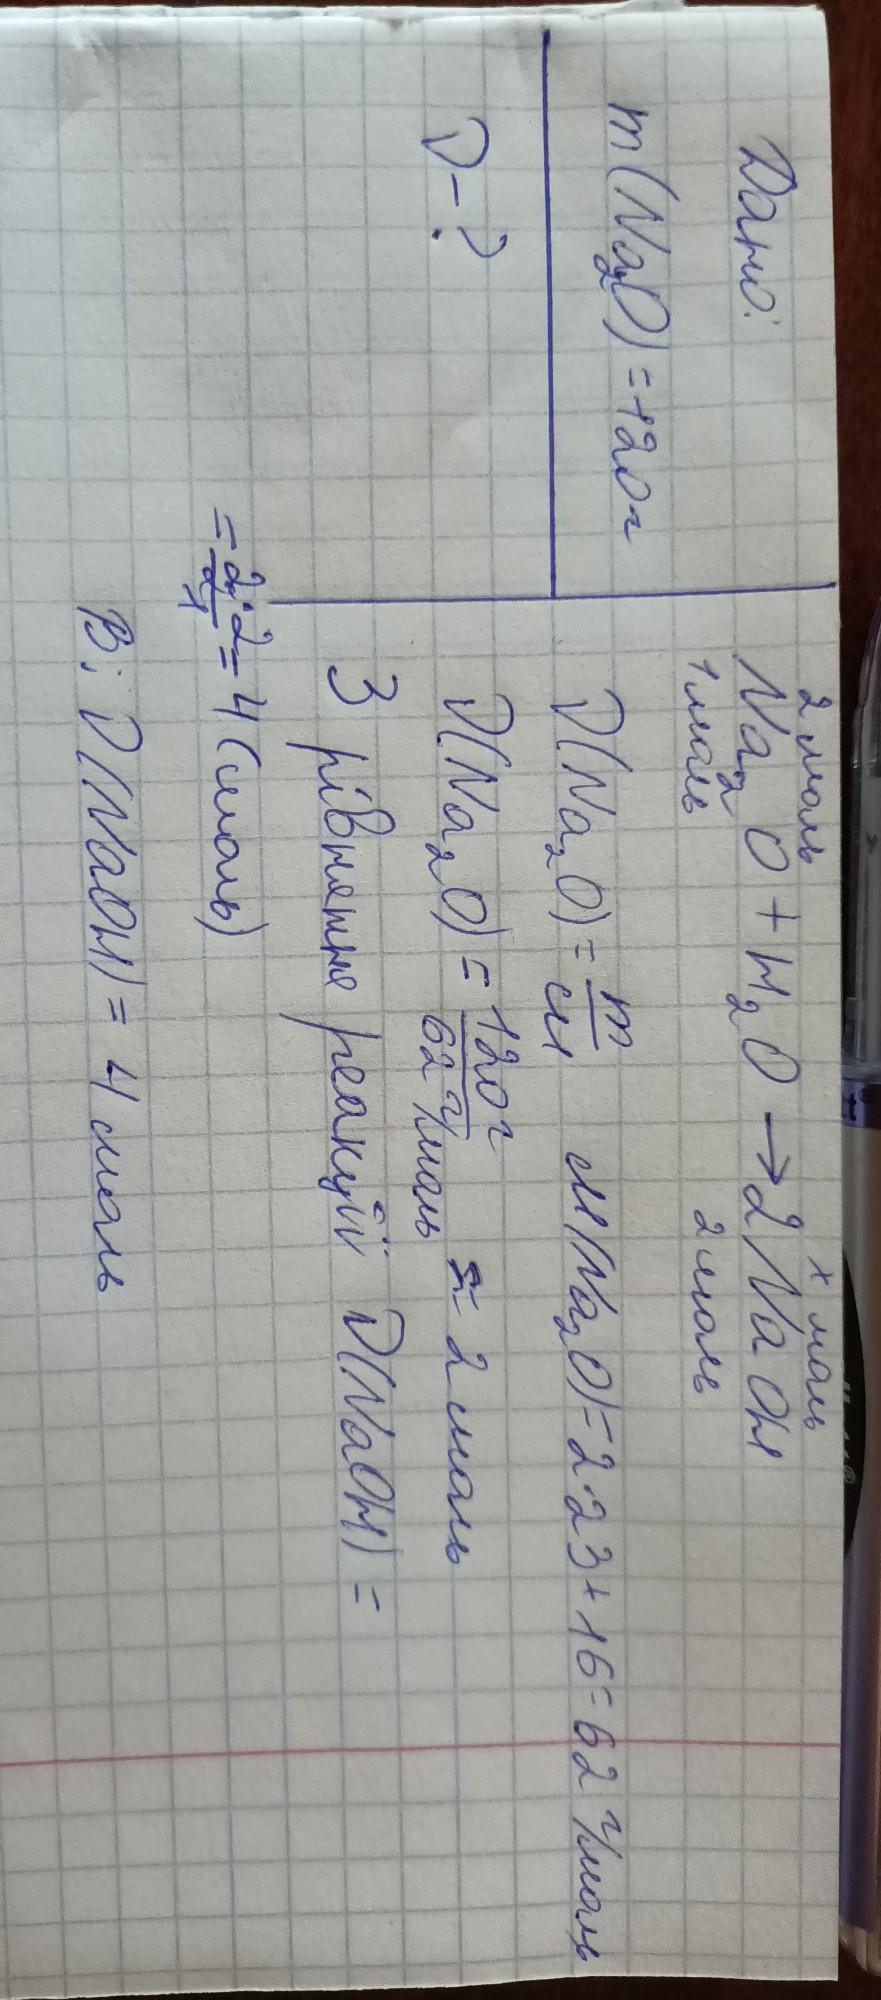 Дано:
m(Na2O)=120г
ν-?
2 моль х моль
Na2O+H2O→2NaOH
1моль 2моль
ν(Na2O)=m/M M(Na2O)=2·23+16=62 г/моль
ν(Na2O)=120г/62 г/моль = 2 моль
З рівняння реакції ν(NaOH)=
=2·2/1=4(моль)
В: ν(NaOH)=4 моль